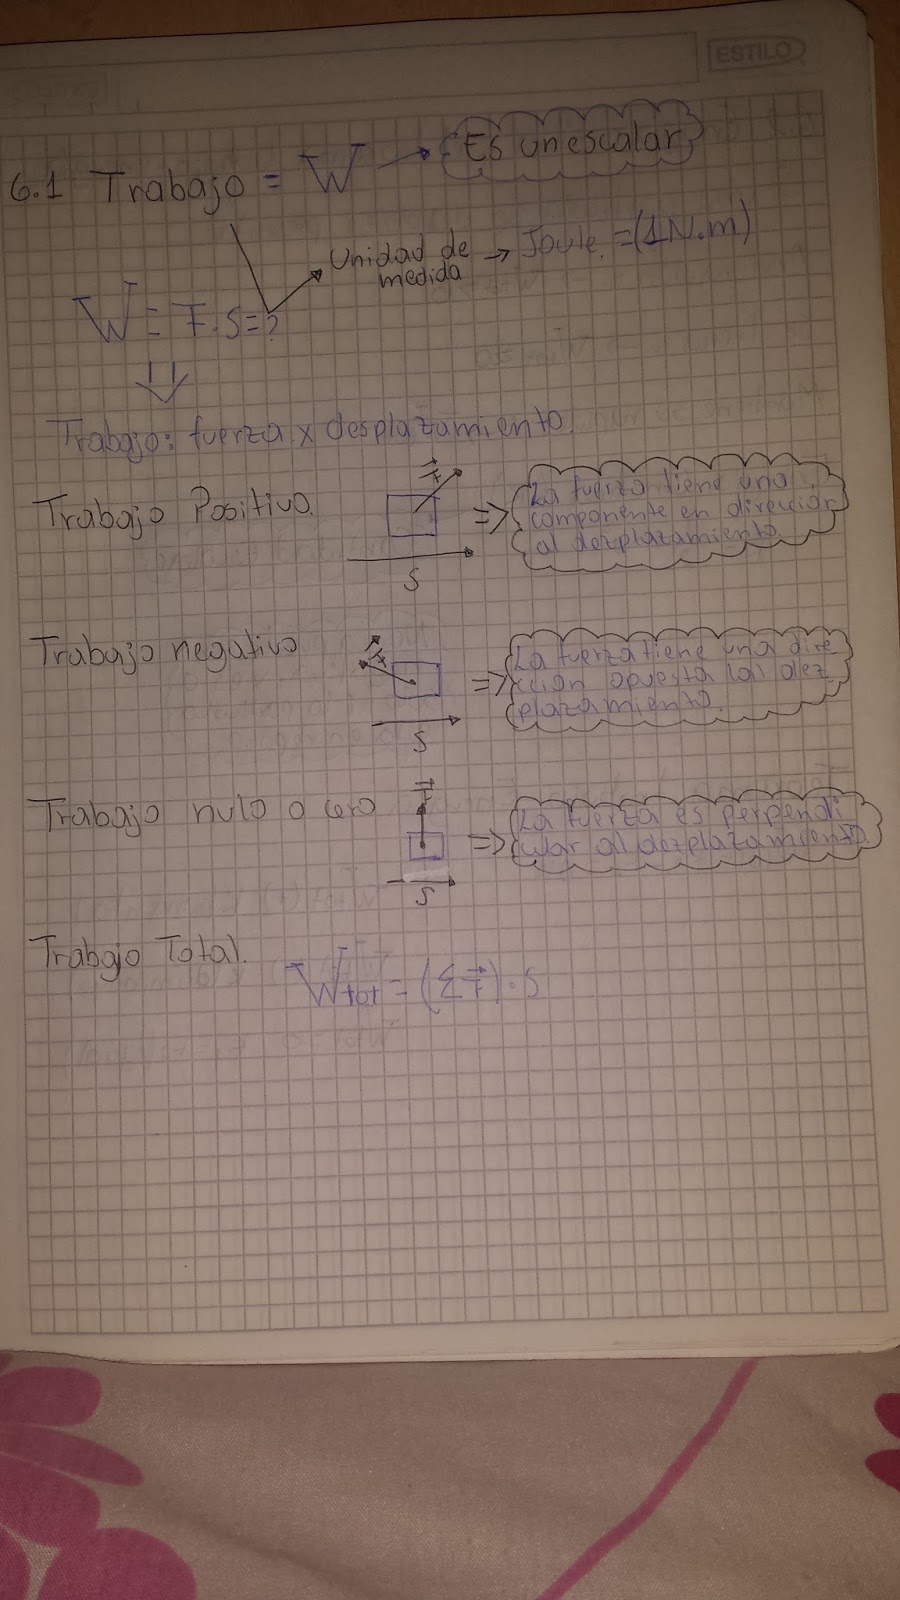 ESTILO
6.1 Trabajo = W → Es un escalar
Unidad de
medida → Joule = (1N.m)
W = F.s = ?
Trabajo: fuerza x desplazamiento
Trabajo Positivo.
F
S
⇒ La fuerza tiene una
componente en dirección
al dezplazamiento.
Trabajo negativo
F
S
⇒ La fuerza tiene una dire
cción opuesta al dez
plazamiento.
Trabajo nulo o cero
F
S
⇒ La fuerza es perpendi
cular al dezplazamiento.
Trabajo Total.
Wtot = (ΣF).s